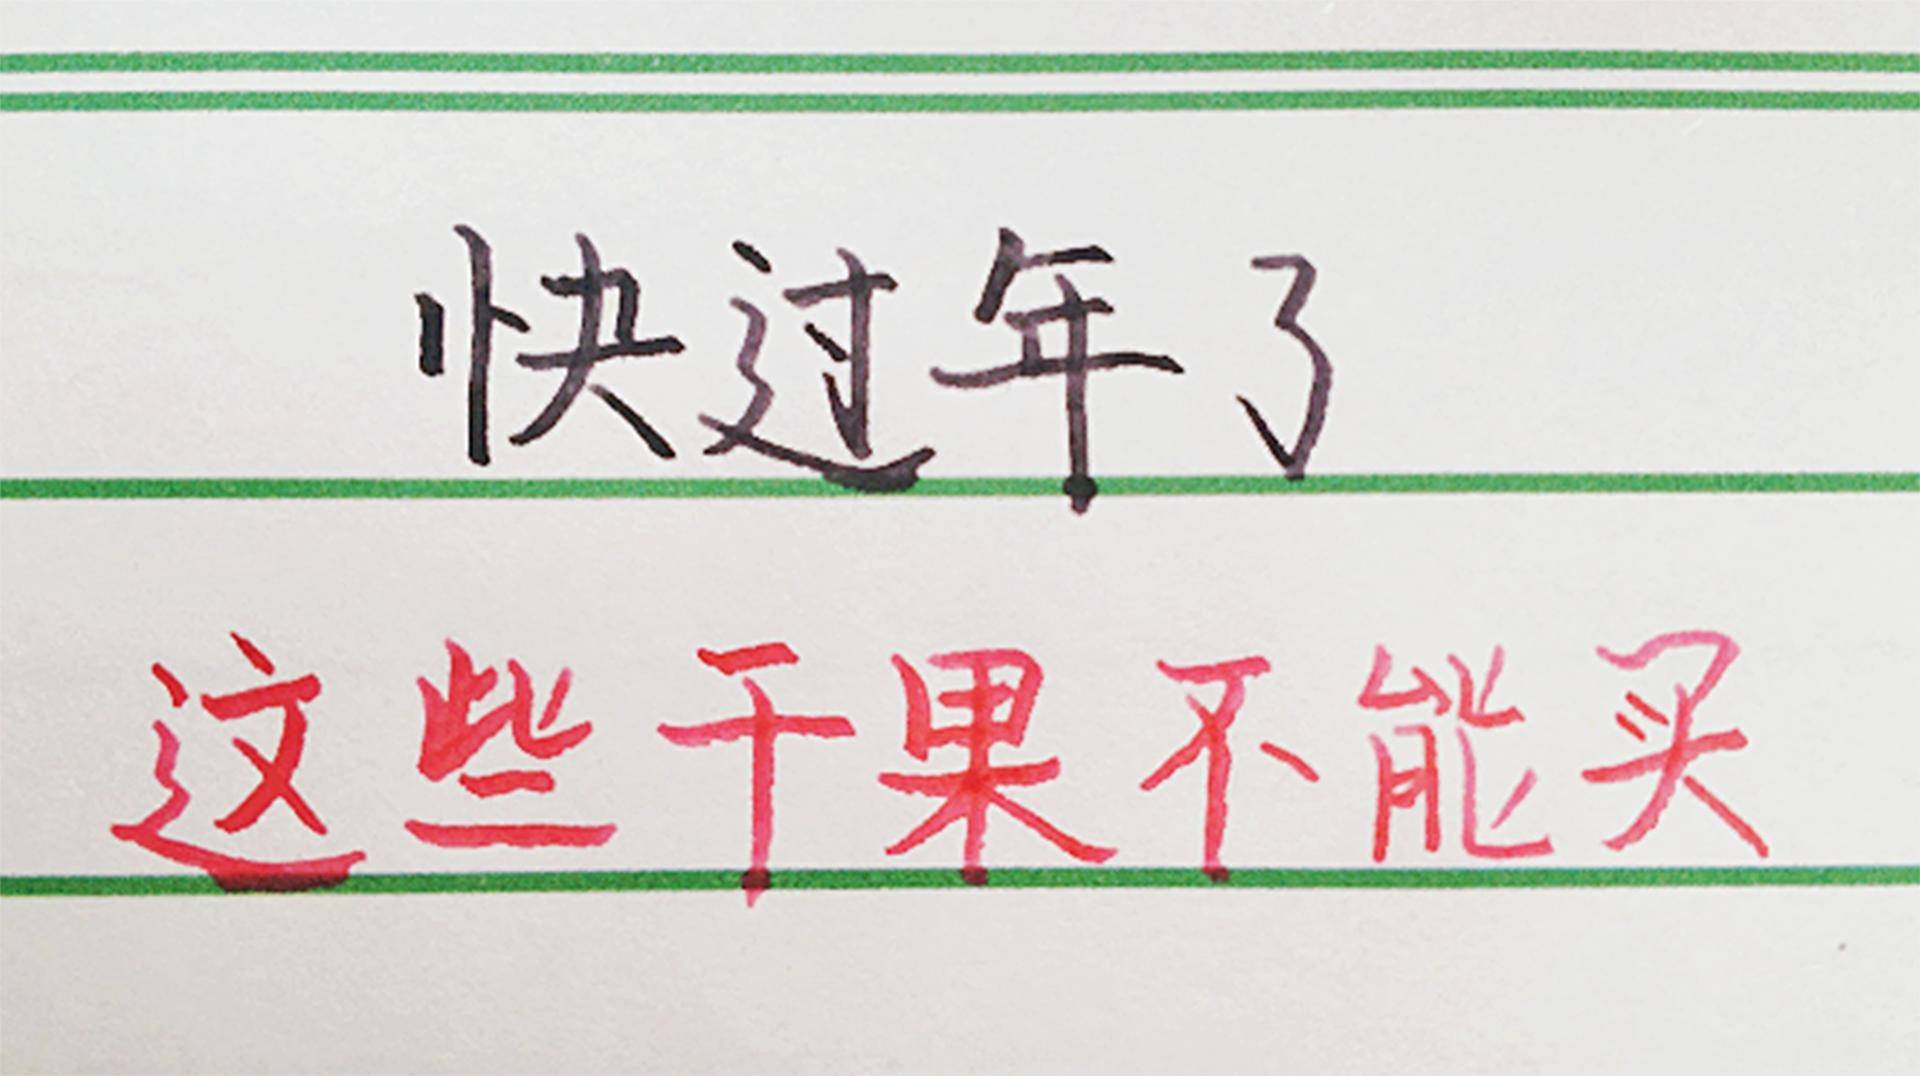 快过年了
这些干果不能买